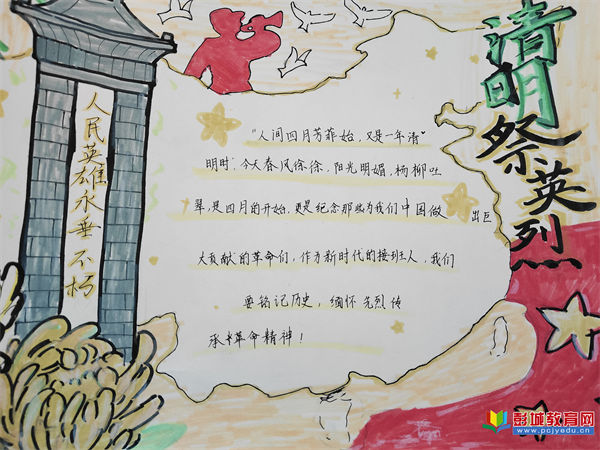 清明祭英烈
人民英雄永垂不朽
"人间四月芳菲始,又是一年清"
明时,今天春风徐徐,阳光明媚,杨柳吐
翠是四月的开始,更是纪念那些为我们中国做出巨
大贡献的革命们,作为新时代的接班人,我们
要铭记历史,缅怀先烈传
承革命精神!
彭城教育网
www.pcjyedu.cn